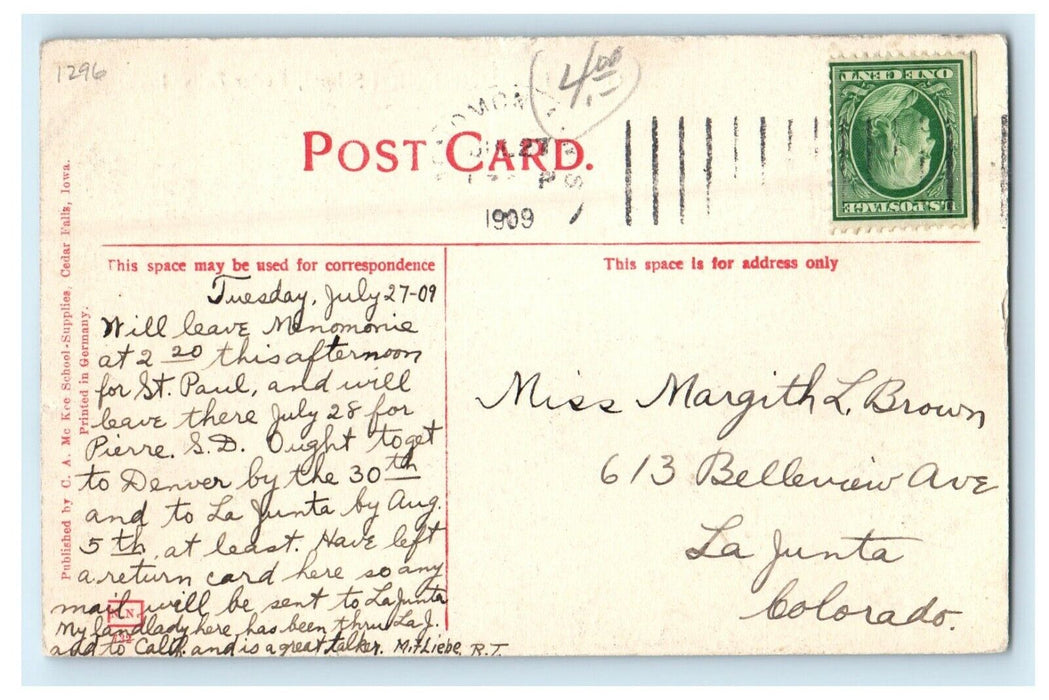 1296
4.00
POST CARD.
JUL 27
P
1909
U.S. POSTAGE
ONE CENT
This space may be used for correspondence
This space is for address only
Published by C. A. Mc Kee School-Supplies, Cedar Falls, Iowa.
Printed in Germany.
Tuesday, July 27-09
Will leave Menomonie
at 2 20 this afternoon
for St. Paul, and will
leave there July 28 for
Pierre. S.D. Ought to get
to Denver by the 30th
and to La Junta by Aug.
5th, at least. Have left
a return card here so any
mail will be sent to LaJunta
My landlady here has been thru La J.
and to Calif. and is a great talker. Mit Liebe, R.T.
Miss Margith L. Brown
613 Belleview Ave
La Junta
Colorado.